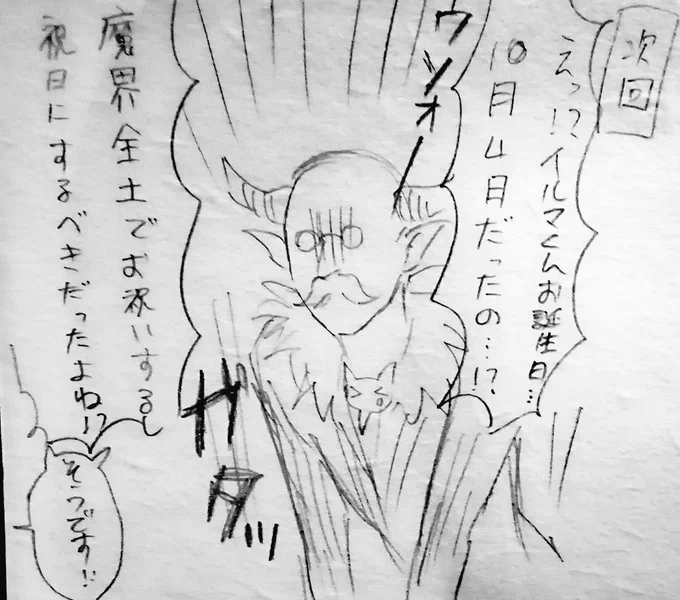 次回
えっ!?イルマくんお誕生日…
10月4日だったの…!?
ウソォー
ガタッ
魔界全土でお祝いするし
祝日にするべきだったよね!?
そうです!!